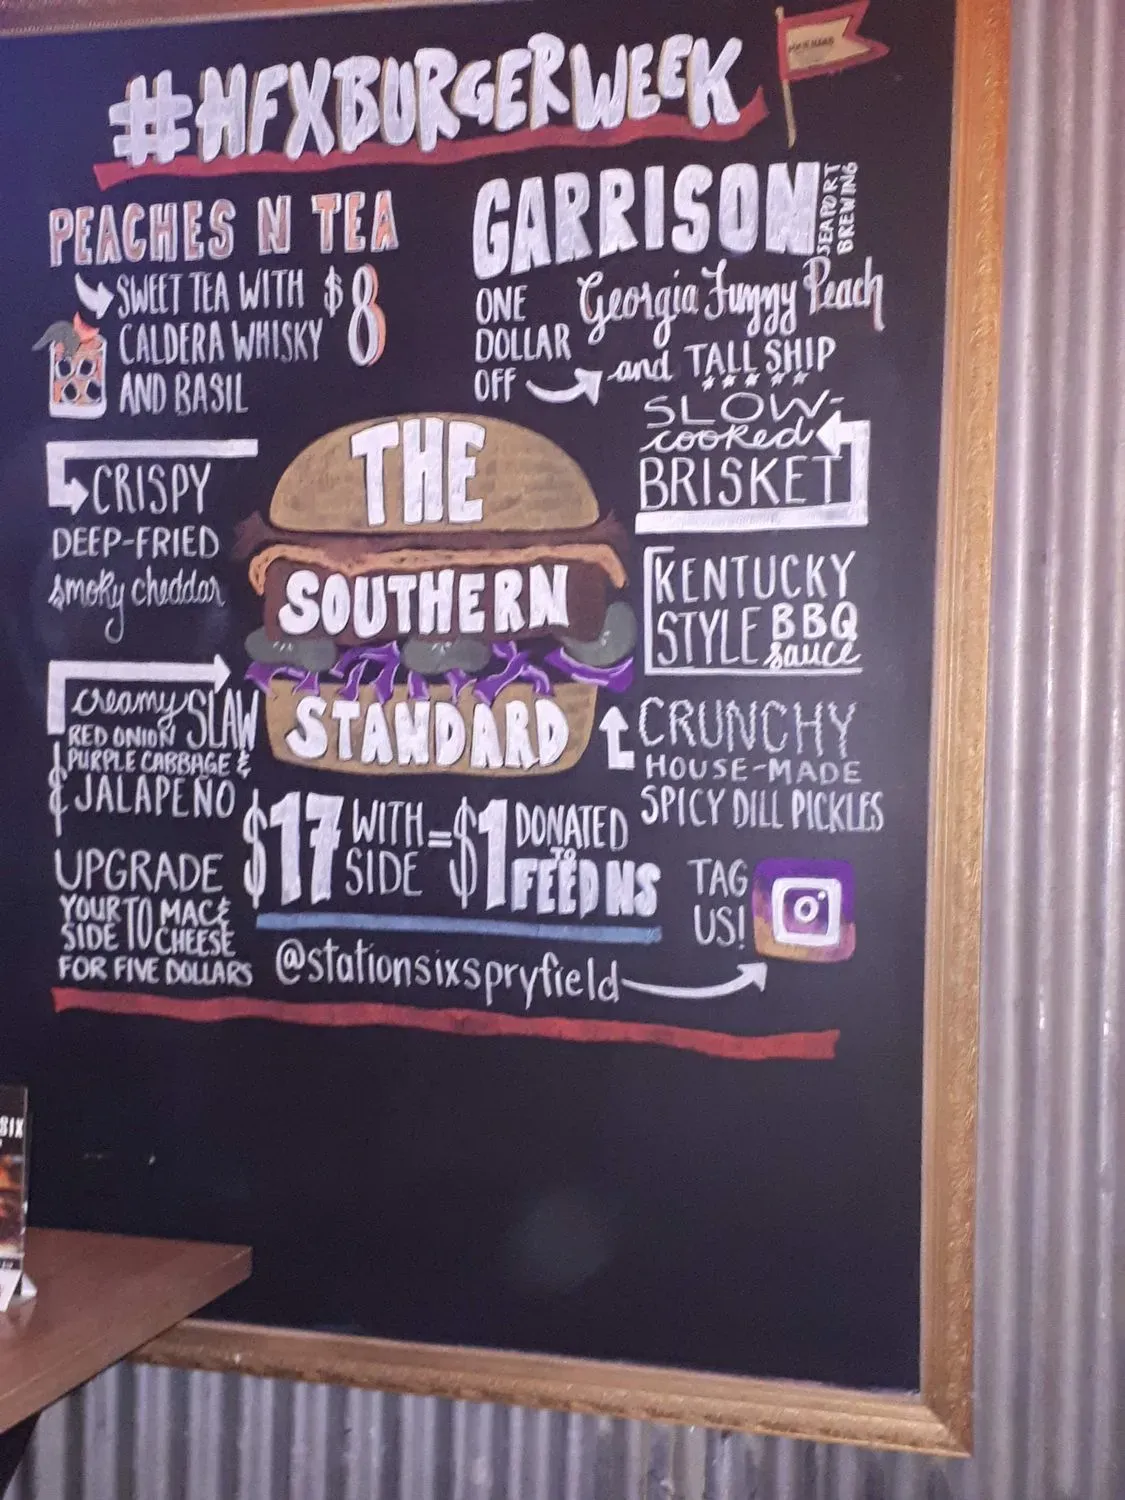 #HFXBURGERWEEK
PEACHES N TEA
SWEET TEA WITH
CALDERA WHISKY
AND BASIL
$8
GARRISON
SEAPORT
BREWING
ONE
DOLLAR
OFF
Georgia Fuzzy Peach
and TALL SHIP
CRISPY
DEEP-FRIED
smoky cheddar
SLOW-
cooked
BRISKET
THE
SOUTHERN
STANDARD
KENTUCKY
STYLE BBQ
sauce
creamy SLAW
RED ONION
PURPLE CABBAGE &
& JALAPEÑO
CRUNCHY
HOUSE-MADE
SPICY DILL PICKLES
$17 WITH
SIDE
= $1 DONATED
TO
FEED NS
UPGRADE
YOUR
SIDE
TO
MAC &
CHEESE
FOR FIVE DOLLARS
TAG
US!
@stationsixspryfield
SIX